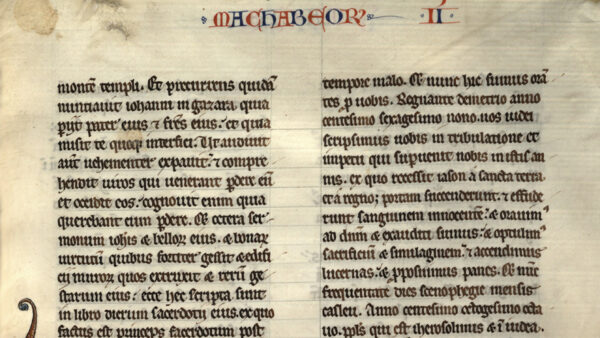 MACHABEOR II
montē templi. Et precurrens quidā
nuntiauit iohanni in gazara quia
ꝑijt pater eius ⁊ frēs eius. et quia
misit te quoqꝫ interfici. Ut audiuit
aūt uehementer expauit: ⁊ compre
hendit uiros qui uenerant ꝑdere eū
et occidit eos. cognouit enim quia
querebant eum ꝑdere. Et cetera ser
monum iohīs ⁊ belloꝝ eius. ⁊ bonaꝝ
uirtutū quibus fortiter gessit ⁊ edifi
cii muroꝝ quos extruxit ⁊ rerū ge
starum eius: ecce hec scripta sunt
in libro dierum sacerdotii eius. ex quo
factus est princeps sacerdotum post
tempore malo. Et nunc hic sumus orā
tes ꝓ uobis. Regnante demetrio anno
centesimo sexagesimo nono. nos iudei
scripsimus uobis in tribulatione et
impetu qui suꝑuenit nobis in istis an
nis. ex quo recessit iason a sancta terra
et a regno. portam succenderunt. ⁊ effude
runt sanguinem innocentē: ⁊ orauimꝰ
ad dnm̄ ⁊ exauditi sumus: ⁊ optulimꝰ
sacrificiū ⁊ similaginem: ⁊ accendimus
lucernas: ⁊ ꝓposuimus panes. Et nūc
frequentate dies scenophegie mensis
casleu. Anno centesimo octogesimo octa
uo. ppl̄s qui est iherosolimis ⁊ ī iudea.